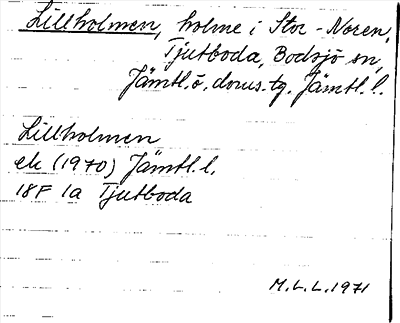 Lillholmen, holme i Stor-Noren,
Tjutboda, Bodsjö sn,
Jämtl. ö. doms.tg. Jämtl. l.
Lillholmen
ek (1970) Jämtl. l.
18F 1a Tjutboda
M.L.L. 1971